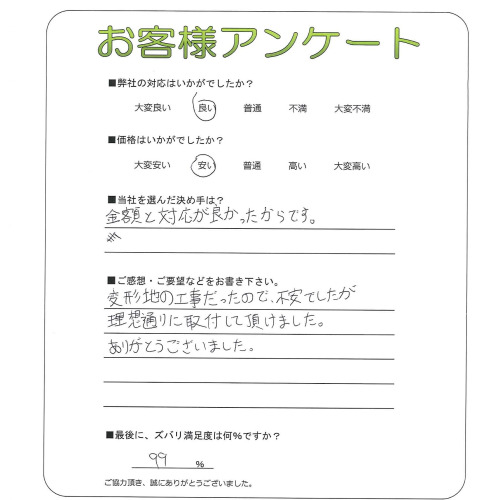 お客様アンケート
■弊社の対応はいかがでしたか？
大変良い 良い 普通 不満 大変不満
■価格はいかがでしたか？
大変安い 安い 普通 高い 大変高い
■当社を選んだ決め手は？
金額と対応が良かったからです。
■ご感想・ご要望などをお書き下さい。
変形地の工事だったので、不安でしたが
理想通りに取付して頂けました。
ありがとうございました。
■最後に、ズバリ満足度は何％ですか？
99 ％
ご協力頂き、誠にありがとうございました。